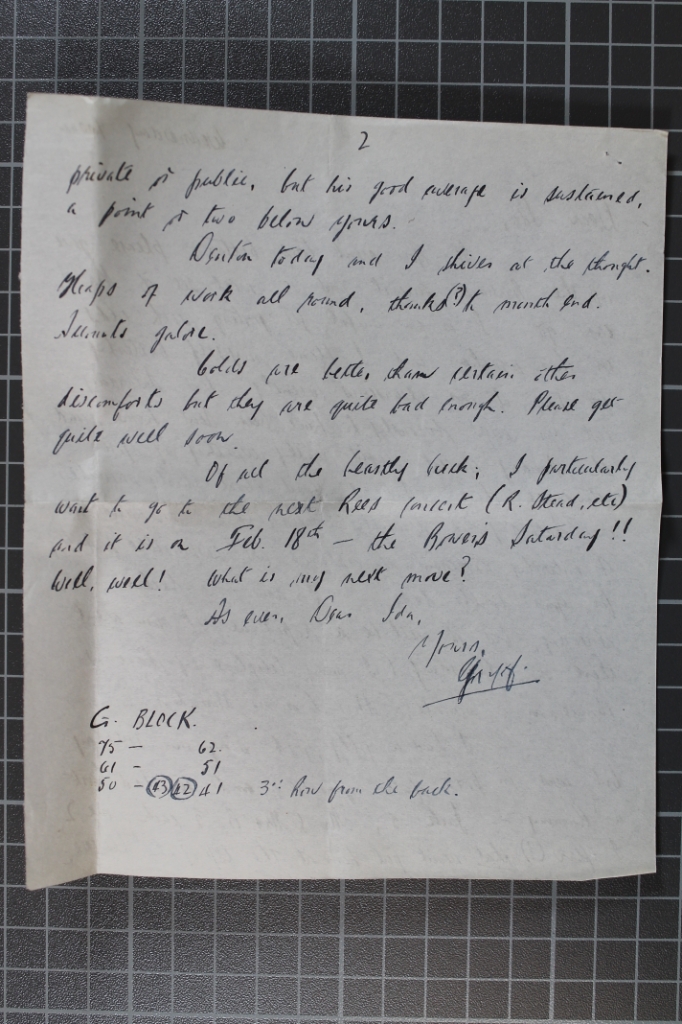 2
private or public, but his good average is sustained,
a point or two below yours.
Denton today and I shiver at the thought.
Heaps of work all round, thanks(?) to month end.
galore.
Colds are better than certain other
discomforts but they are quite bad enough. Please get
quite well soon.
Of all the beastly luck; I particularly
want to go to the next Rees concert (R. Stead, etc)
and it is on Feb. 18th — the Bowers Saturday!!
Well, well! What is my next move?
As ever, Dear Ida,
Yours,
G. BLOCK.
75 — 62.
61 - 51
50 - 43 42 41 3rd Row from the back.